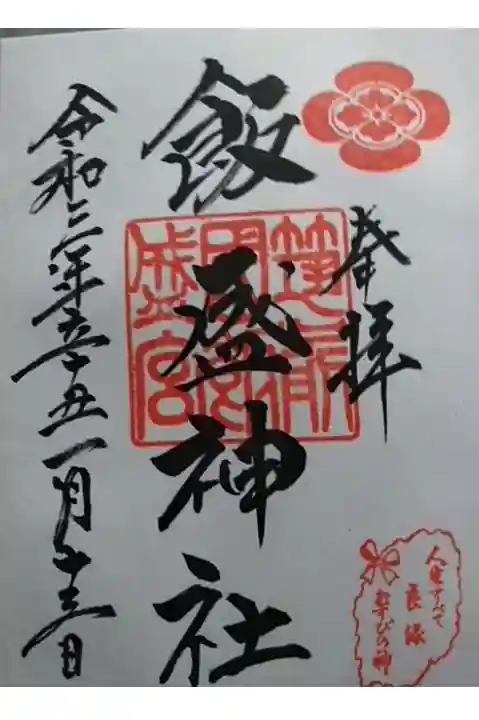 奉拝
飯盛神社
筑前
國飯
盛宮
令和三年辛丑一月十三日
人生すべて
良縁
結びの神